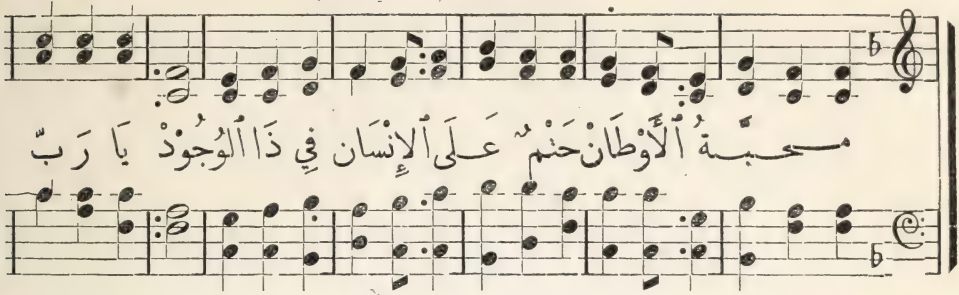 محبَّةُ ٱلْأَوْطَانْ حَتْمٌ عَلَى ٱلْإِنْسَان فِي ذَا ٱلْوُجُودْ يَا رَبّ